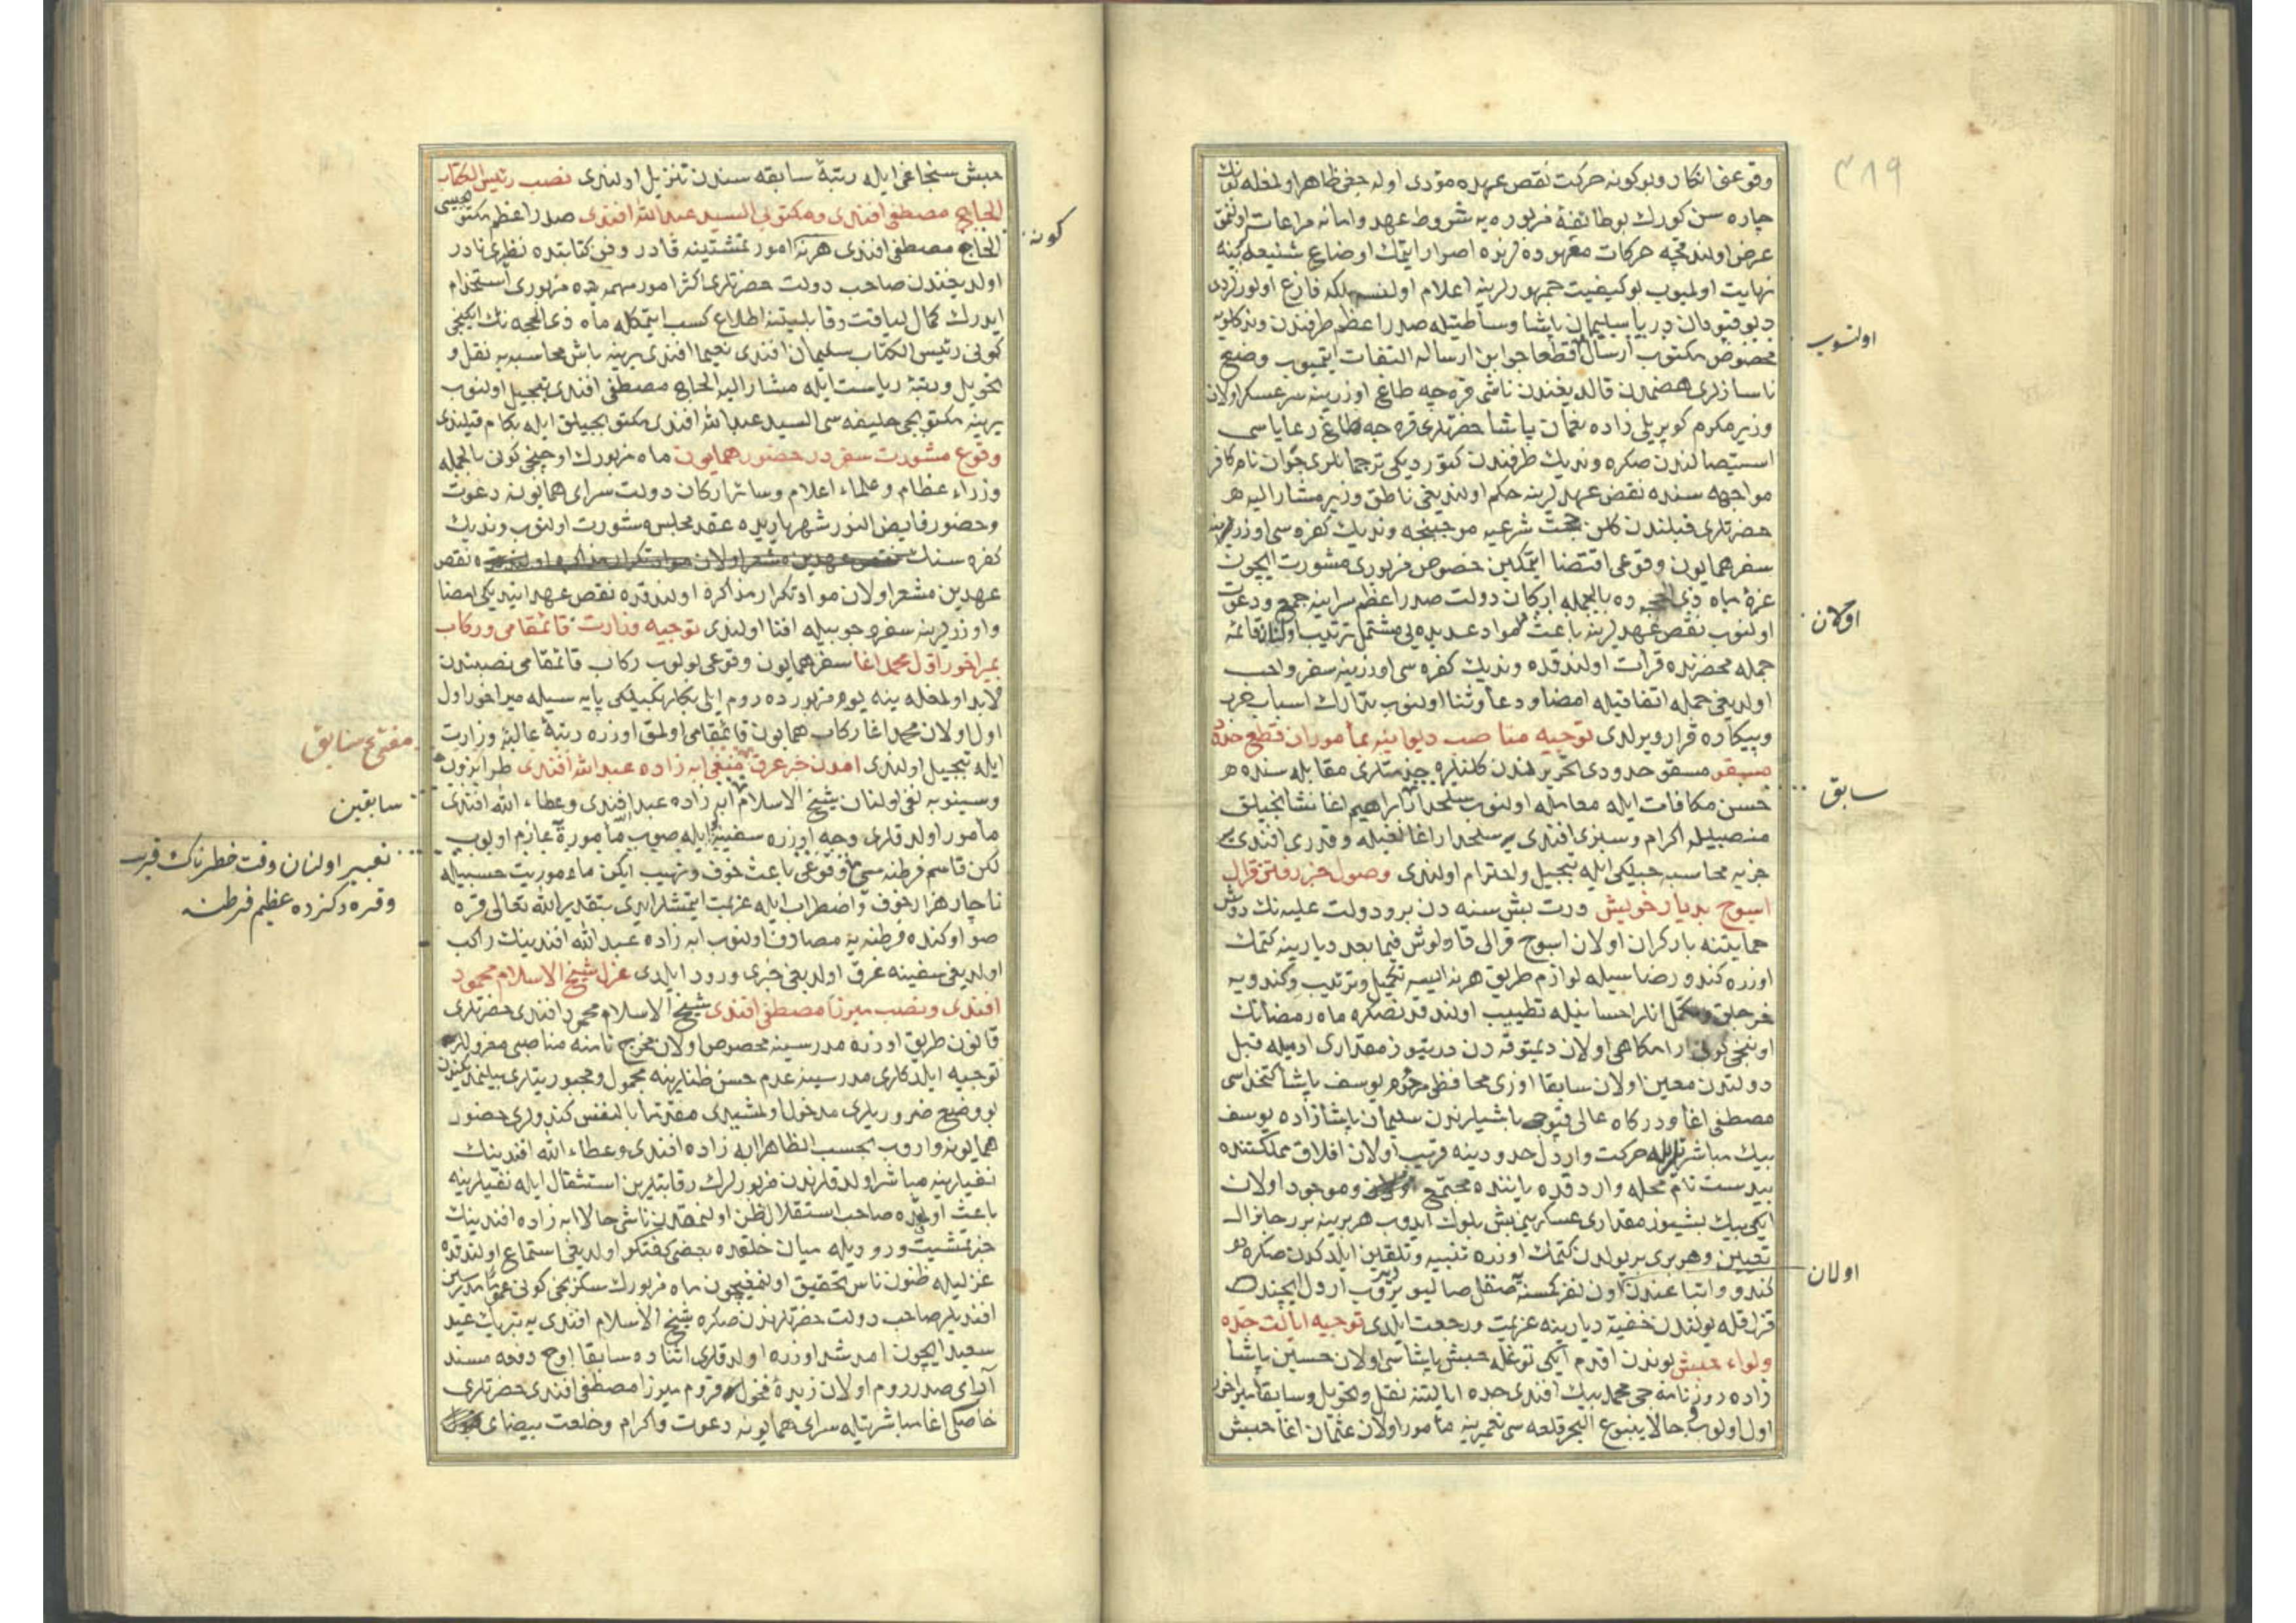 ٣٨٩
وقوعنی انکار و بو کونه حرکت نقض عهده مؤدی اوله جغی ظاهر اولمغله
چاره سن کورك بو طائفهٔ مزبوره یه شروط عهد و امانه مراعات اولنمق
عرض اولندقچه حرکات معهوده لرنده اصرار ایتمك اوضاع شنیعه لرینه
نهایت اولمیوب بو کیفیت جمهورلرینه اعلام اولنسه بلکه فارغ اولورلردی
دیو قپودان دریا سلیمان پاشا وساطتیله صدر اعظم طرفندن وندیك دوکاسنه
مخصوص مکتوب ارسال قطعا جوابن ارساله التفات ایتمیوب وضع
اولنوب
ناسازلری هضمدن قالدیغندن ناشی قره جه طاغ اوزرینه سرعسکر اولان
وزیر مکرم کوپریلی زاده نعمان پاشا حضرتلری قره جه طاغ رعایاسی
استیصالندن صکره وندیك طرفندن کتوردیکی ترجمانلری جوان نام کافر
مواجهه سنده نقض عهدلرینه حکم اولندیغی ناطق وزیر مشار الیه
حضرتلری قبلندن کلن حجت شرعیه موجبنجه وندیك کفره سی اوزرلرینه
سفر همایون وقوعی اقتضا ایتمکین خصوص مزبوری مشورت ایچون
غرهٔ ماه ذی الحجه ده بالجمله ارکان دولت صدر اعظم سراینه جمع و دعوت
اولنوب نقض عهدلرینه باعث مواد عدیده یی مشتمل ترتیب اولنان قائمه
اولان
جمله محضرنده قرائت اولندقده وندیك کفره سی اوزرینه سفر واجب
اولدیغی جمله اتفاقیله امضا و دعا و ثنا اولنوب تدارك اسباب حرب
و پیکاره قرار ویرلدی توجیه مناصب دیوانیه بمأموران قطع حدود
مسقو مسقو حدودی تحریرلندن کلنلره خدمتلری مقابله سنده
حسن مکافات ایله معامله اولنوب سلحدار ابراهیم اغا نشانجیلق
سابق
منصبیله اکرام و سبزی افندی یه سلحدار اغا نعبله و قدری افندی یه
جزیه محاسبه جیلکی ایله تبجیل و احترام اولندی وصول خبر رفتن قرال
اسوج بدیار خویش درت بش سنه دن برو دولت علیه نك دوش
حمایتنه بارکران اولان اسوج قرالی قارلوش فیما بعد دیارینه کتمك
اوزره کندو رضاسیله لوازم طریق هر نه ایسه تکمیل و ترتیب و کندویه
خرجلق و مکمل اتلر احسانیله تطییب اولندقدنصکره ماه رمضانك
اوننجی کونی ارامکاهی اولان دیمتوقه دن درتیوز مقداری ادمیله قبل
دولتدن معین اولان سابقا اوزی محافظی مرحوم یوسف پاشا کتخداسی
مصطفی اغا و درکاه عالی قپوجی باشیلرندن سلیمان پاشا زاده یوسف
بیك مباشرتلریله حرکت و اردل حدودینه قریب اولان افلاق مملکتنده
پیدست نام محله وارد قده یاننده مجتمع و موجود اولان
ایکی بیك بشیوز مقداری عسکر یمیش بلوك ایدوب هر برینه بر رجانرال
تعیین و هر بری بر یولدن کتمك اوزره تنبیه و تلقین ایلدکدن صکره
کندو و اتباعندن اون نفر کمسنه صقل صالیویروب اردل ایچنده
اولان
قزل قله یولندن خفیة دیارینه عزیمت و رجعت ایلدی توجیه ایالت جده
و لواء حبش بوندن اقدم ایکی توغله حبش پاشاسی اولان حسین پاشا
زاده روزنامه جی محمد بیك افندی جده ایالتنه نقل و تحویل و سابقا میراخور
اول اولوب حالا ینبوع البحر قلعه سی تعمیرینه مأمور اولان عثمان اغا حبش
حبش سنجاغی ایله رتبهٔ سابقه سندن تنزیل اولندی نصب رئیس الکتاب
الحاج مصطفی افندی و مکتوبی السید عبد الله افندی صدر اعظم مکتوبجیسی
الحاج مصطفی افندی هر نه امور تمشیتینه قادر و فن کتابتده نظیری نادر
کونه
اولدیغندن صاحب دولت حضرتلری اکثر امور مهمه ده مزبوری استخدام
ایدرك کمال لیاقت و قابلیتنه اطلاع کسب ایتمکله ماه ذی الحجه نك ایکنجی
کونی رئیس الکتاب سلیمان افندی نعیما افندی یرینه باش محاسبه یه نقل و
تحویل و رتبهٔ ریاست ایله مشار الیه الحاج مصطفی افندی تبجیل اولنوب
یرینه مکتوبجی خلیفه سی السید عبد الله افندی مکتوبجیلق ایله بکام قیلندی
وقوع مشورت سفر در حضور همایون ماه مزبورك اوچنجی کونی بالجمله
وزراء عظام و علماء اعلام و سائر ارکان دولت سرای همایونه دعوت
و حضور فایض النور شهریاریده عقد مجلس مشورت اولنوب وندیك
کفره سنك نقض عهدین مشعر اولان مواد تکرار مذاکره اولندقده نقض
عهدین مشعر اولان مواد تکرار مذاکره اولندقده نقض عهد ایتدیکی امضا
و اوزرلرینه سفر وجوبیله افتا اولندی توجیه وزارت قائمقامی و رکاب
بمیراخور اول محمد اغا سفر همایون وقوعی بولوب رکاب قائمقامی نصبندن
لابد اولمغله ینه یوم مزبورده روم ایلی بکلربکیلکی پایه سیله میراخور اول
اول اولان محمد اغا رکاب همایون قائمقامی اولمق اوزره رتبهٔ عالیهٔ وزارت
ایله تبجیل اولندی امدن خبر غرق منفی ابه زاده عبد الله افندی طرابزون
مفتی سابق
و سینوبه نفی اولنان شیخ الاسلام ابه زاده عبد الله افندی و عطاء الله افندی
سابقین
مأمور اولدقلری وجه اوزره سفینه ایله صوب مأموره عازم اولوب
لکن قاسم فرطنه سی وقوعی باعث خوف و نهیب ایکن مأموریت حسبیله
تعبیر اولنان وقت خطرناك قرب
ناچار هزار خوف و اضطراب ایله عزیمت ایتمشلر ایدی بتقدیر الله تعالی قره
و قره دکزده عظیم فرطنه
صو اوکنده فرطنه یه مصادف اولنوب ابه زاده عبد الله افندینك راکب
اولدیغی سفینه غرق اولدیغی خبری ورود ایلدی عزل شیخ الاسلام محمود
افندی و نصب میرزا مصطفی افندی شیخ الاسلام محمود افندی حضرتلری
قانون طریق اوزره مدرسینه مخصوص اولان مخرج نامنه مناصبی معزوللره
توجیه ایلدکلری مدرسینه عدم حسن ظنلرینه محمول و مجبوریتلری بیلنمدیکندن
بو وضع ضروریلری مدخول اولمشیدی مقدما بالنفس کندولری حضور
همایونه واروب بحسب الظاهر ابه زاده افندی و عطاء الله افندینك
نفیلرینه مباشر اولدقلرندن مزبورلرك رقابتلرین استثقال ایله نفیلرینه
باعث اولوبده صاحب استقلال ظن اولنمقدن ناشی حالا ابه زاده افندینك
خبر مشیت ورودیله میان خلقده بعضی کفتکو اولدیغی استماع اولندقده
عزلیله ظنون ناس تحقیق اولنمغیچون ماه مزبورك سکزنجی کونی عموما مدرسین
افندیلر صاحب دولت حضرتلرندن صکره شیخ الاسلام افندی یه تبریك عید
سعید ایچون امد شد اوزره اولدقلری اثناده سابقا اوچ دفعه مسند
آرای صدر روم اولان زبدهٔ فحول قروم میرزا مصطفی افندی حضرتلری
خاصکی اغا مباشرتیله سرای همایونه دعوت و اکرام و خلعت بیضای